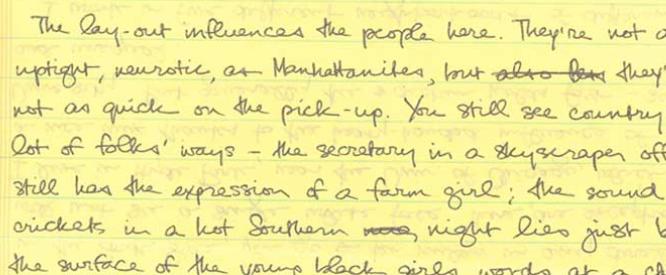 The lay-out influences the people here. They're not a
uptight, neurotic, as Manhattanites, but also less they'
not as quick on the pick-up. You still see country
lot of folks' ways – the secretary in a skyscraper off
still has the expression of a farm girl; the sound
crickets in a hot Southern night lies just b
the surface of the young black girls words at a